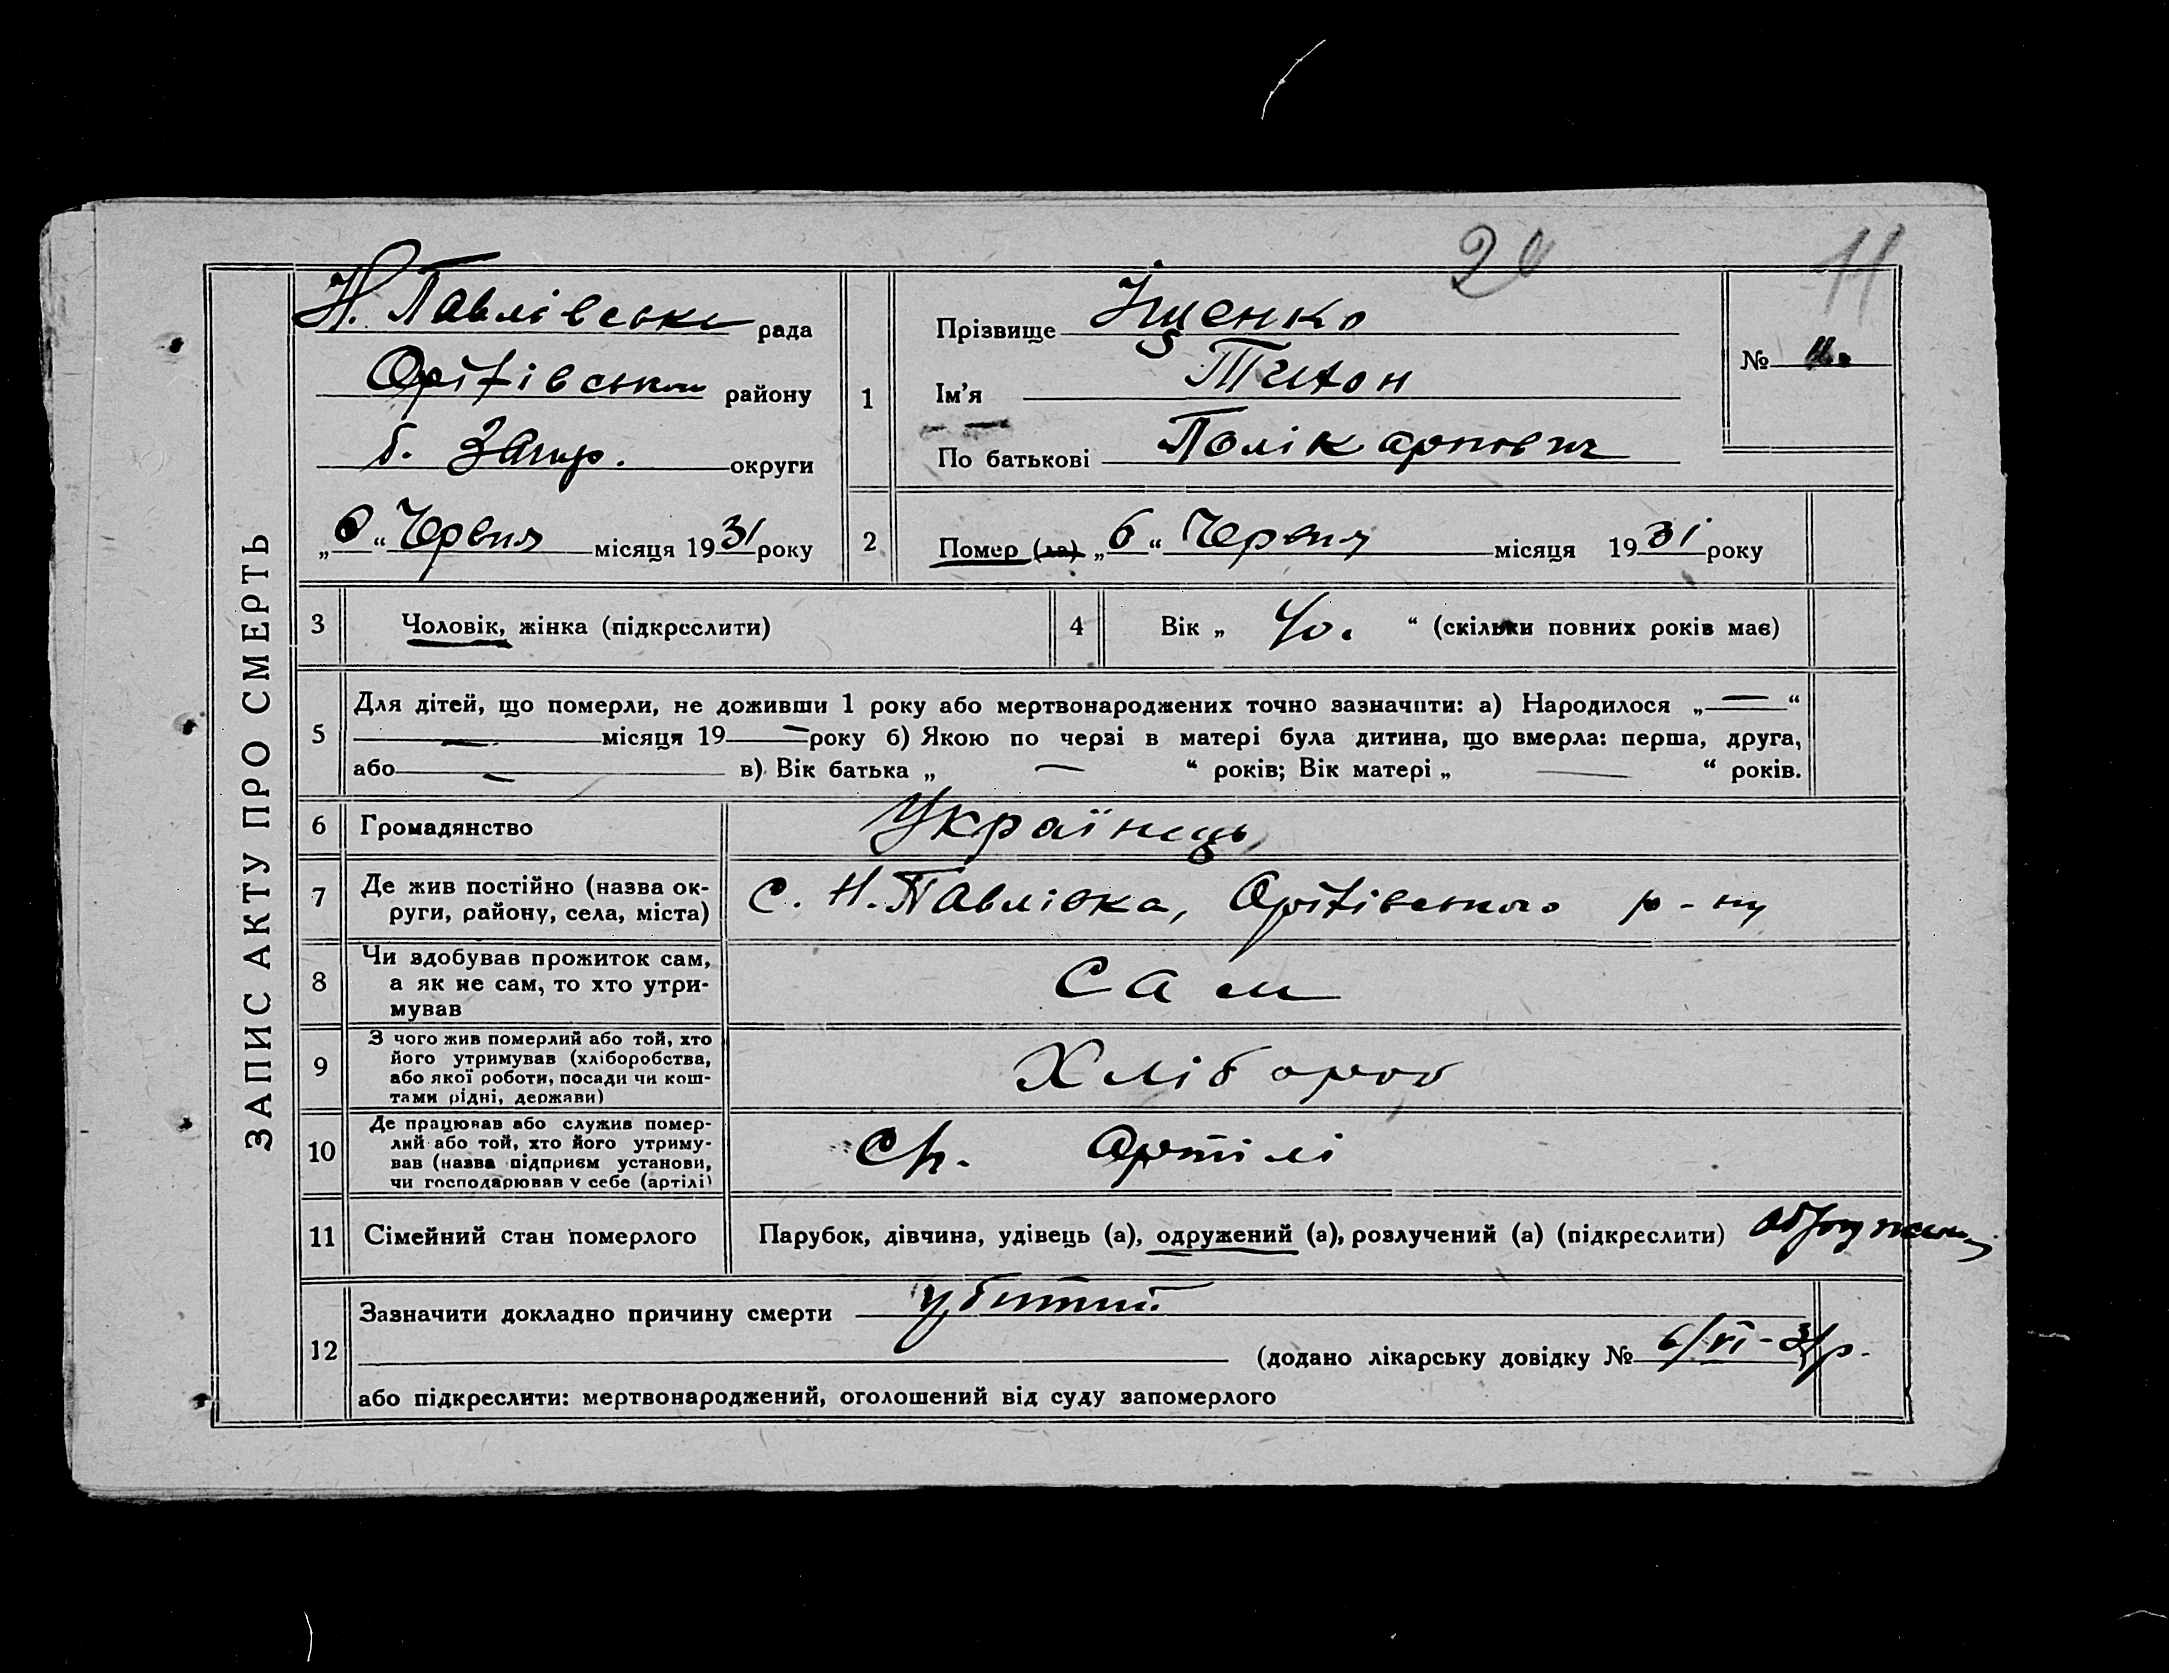 ЗАПИС АКТУ ПРО СМЕРТЬ
11
Н. Павлівська рада
Оріхівського району
б. Запор. округи
„6“ Червня місяця 1931 року
1
Прізвище Іщенко
Ім'я Тихон
По батькові Полікарпович
№ 11
2
Помер (ла) „6“ Червня місяця 1931 року
3 Чоловік, жінка (підкреслити)
4 Вік „ 40. “ (скільки повних років має)
5 Для дітей, що померли, не доживши 1 року або мертвонароджених точно зазначити: а) Народилося „—“
— місяця 19 — року б) Якою по черзі в матері була дитина, що вмерла: перша, друга,
або — в) Вік батька „ — “ років; Вік матері „ — “ років.
6 Громадянство Українець
7 Де жив постійно (назва ок-
руги, району, села, міста) С. Н. Павлівка, Оріхівського р-ну
8 Чи здобував прожиток сам,
а як не сам, то хто утри-
мував Сам
9 З чого жив померлий або той, хто
його утримував (хліборобства,
або якої роботи, посади чи кош-
тами рідні, держави) Хлібороб
10 Де працював або служив помер-
лий або той, хто його утриму-
вав (назва підприєм установи,
чи господарював у себе (артілі) артілі
11 Сімейний стан померлого Парубок, дівчина, удівець (а), одружений (а), розлучений (а) (підкреслити) одружений
12 Зазначити докладно причину смерти убитий
(додано лікарську довідку № 6/VI-31р.
або підкреслити: мертвонароджений, оголошений від суду запомерлого